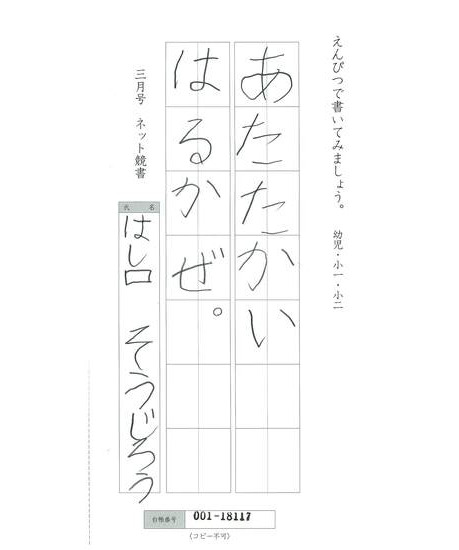 えんぴつで書いてみましょう。 幼児・小一・小二
あたたかい
はるかぜ。
三月号 ネット競書
氏名
はし口 そうじろう
台帳番号 001-18117
(コピー不可)